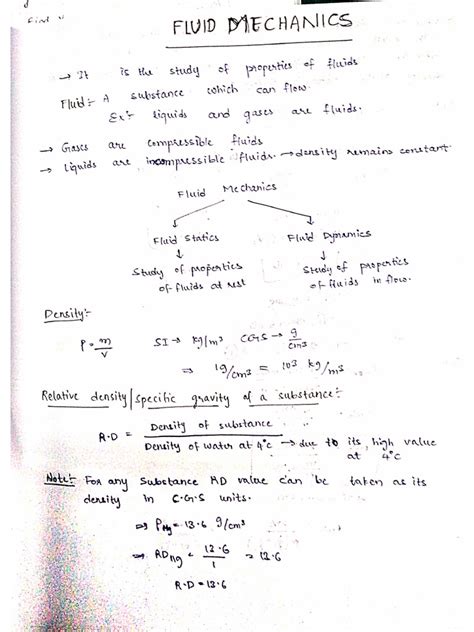 FLUID MECHANICS
→ It is the study of properties of fluids
Fluid :- A substance which can flow.
Ex :- liquids and gases are fluids.
→ Gases are compressible fluids
→ Liquids are incompressible fluids. → density remains constant
Fluid Mechanics
Fluid Statics Fluid Dynamics
↓ ↓
Study of properties of fluids at rest
Study of properties of fluids in flow.
Density :-
ρ = m/v SI → kg/m³ CGS → g/cm³
⇒ 1g/cm³ = 10³ kg/m³
Relative density/specific gravity of a substance :-
R.D = Density of substance
Density of water at 4°c → due to its high value
at 4°c
Note :- For any Substance RD value can be taken as its
density in C.G.S units.
⇒ ρHg = 13.6 g/cm³
⇒ RDHg = 13.6/1 = 13.6
R.D = 13.6